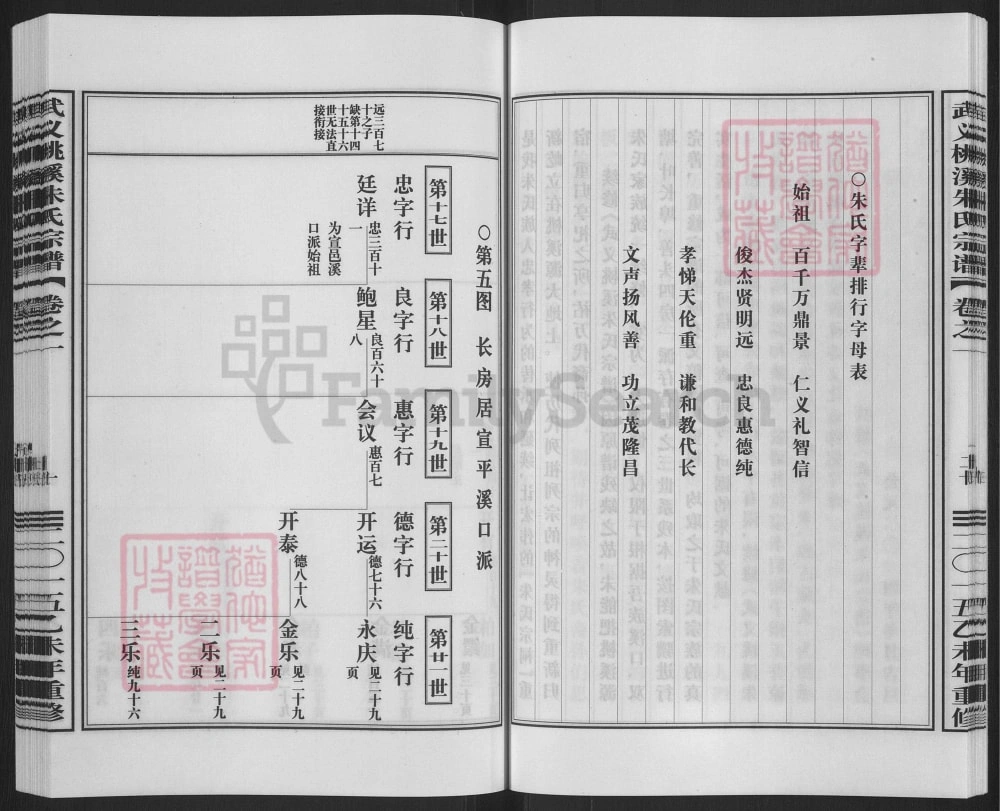 武义桃溪朱氏宗谱【卷之一
二〇一五乙未年重修
〇朱氏字辈排行字母表
始祖 百千万鼎景 仁义礼智信
俊杰贤明远 忠良惠德纯
孝悌天伦重 谦和教代长
文声扬风善 功立茂隆昌
〇第五图 长房居宣平溪口派
第十七世
第十八世
第十九世
第二十世
第廿一世
忠字行
良字行
惠字行
德字行
纯字行
远三百七
十之子
缺第十四
十五十六
世无法直
接衔接
廷详
忠三百十
一
为宣邑溪
口派始祖
鲍星
良百六十
八
会议
惠百七
开运
德七十六
永庆
见二十九
页
开泰
德八十八
金乐
见二十九
页
二乐
见二十九
页
三乐
纯九十六
武义桃溪朱氏宗谱【卷之一
二〇一五乙未年重修
FamilySearch